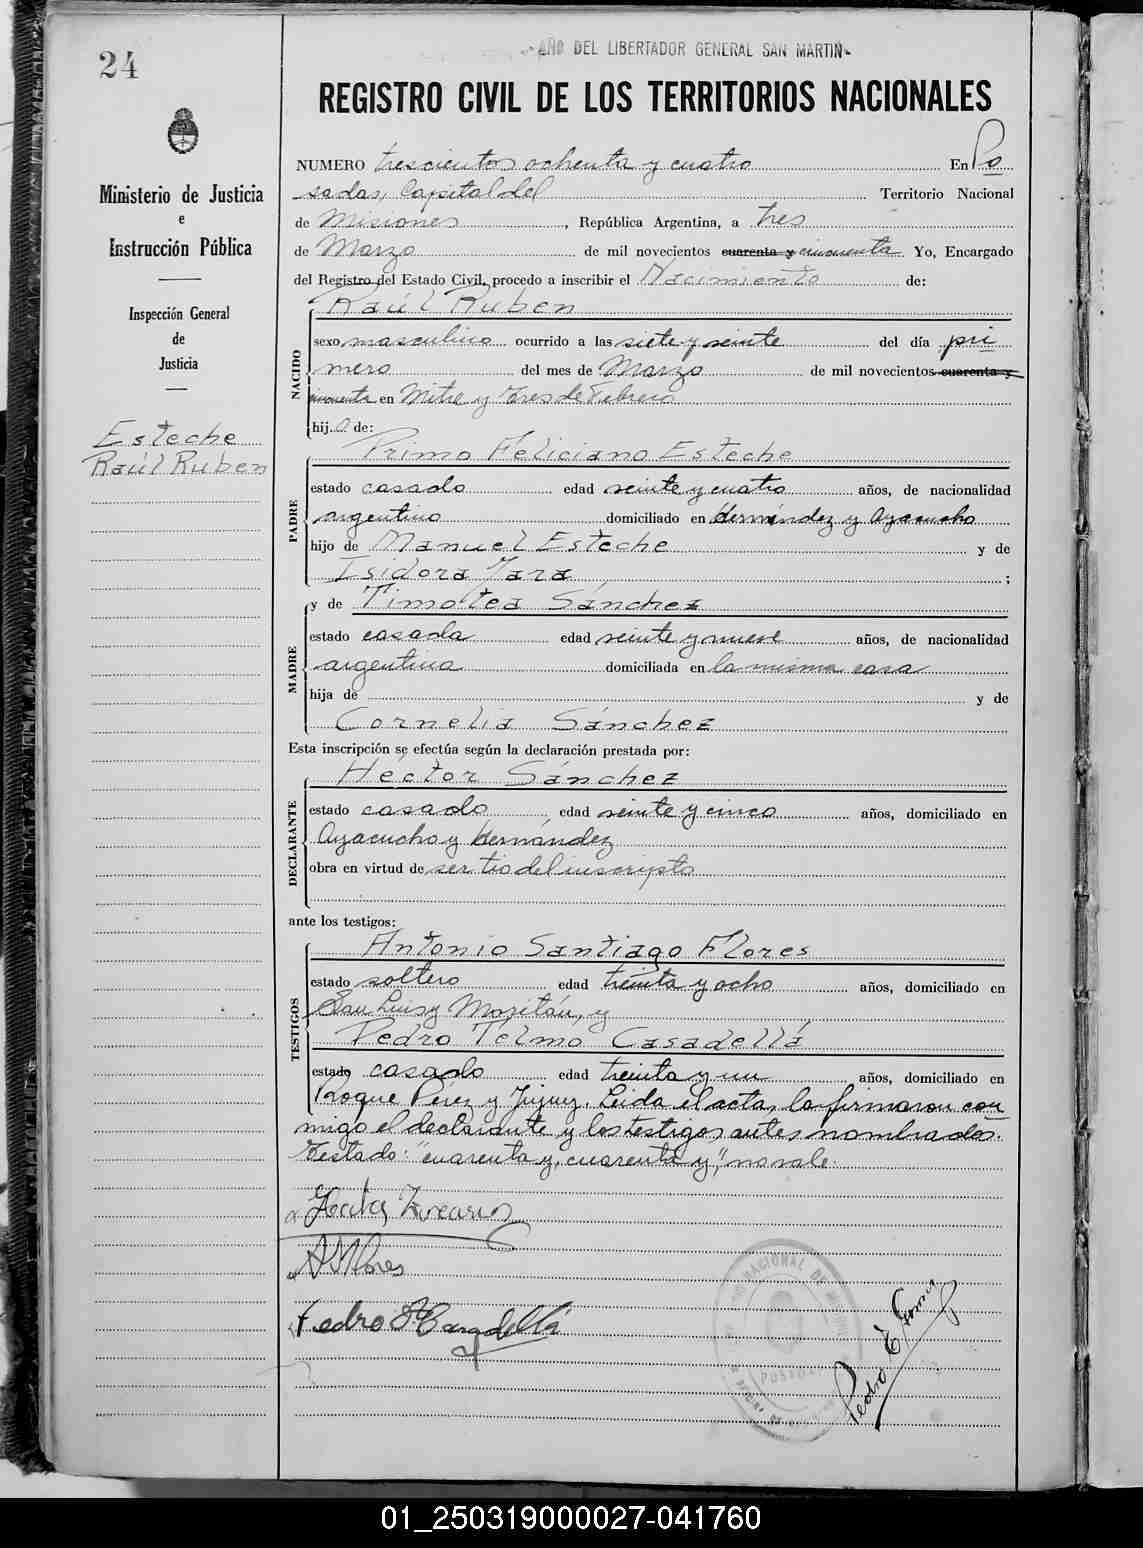 24
AÑO DEL LIBERTADOR GENERAL SAN MARTIN
REGISTRO CIVIL DE LOS TERRITORIOS NACIONALES
Ministerio de Justicia
e
Instrucción Pública
Inspección General
de
Justicia
Esteche
Raúl Ruben
NUMERO trescientos ochenta y cuatro En Po
sadas, Capital del Territorio Nacional
de Misiones, República Argentina, a tres
de Marzo de mil novecientos cuarenta y cincuenta Yo, Encargado
del Registro del Estado Civil, procedo a inscribir el Nacimiento de:
Raúl Ruben
NACIDO
sexo masculino ocurrido a las siete y veinte del día pri
mero del mes de Marzo de mil novecientos cuarenta y
cincuenta en Mitre y Tres de Febrero
hij o de:
Primo Feliciano Esteche
PADRE
estado casado edad veinte y cuatro años, de nacionalidad
argentino domiciliado en Hernández y Ayacucho
hijo de Manuel Esteche y de
Isidora Jara;
y de Timotea Sánchez
MADRE
estado casada edad veinte y nueve años, de nacionalidad
argentina domiciliada en la misma casa
hija de y de
Cornelia Sánchez
Esta inscripción se efectúa según la declaración prestada por:
Héctor Sánchez
DECLARANTE
estado casado, edad veinte y cinco años, domiciliado en
Ayacucho y Hernández
obra en virtud de ser tio del inscripto
ante los testigos:
Antonio Santiago Flores
TESTIGOS
estado soltero edad treinta y ocho años, domiciliado en
San Luis y Mapitán, y
Pedro Telmo Casadellá
estado casado edad treinta y un años, domiciliado en
Roque Pérez y Jujuy. Leida el acta, la firmaron con
migo el declarante y los testigos antes nombrados.
Testado: "cuarenta y, cuarenta y", no vale.
A S Flores
Pedro T Casadellá
NACIONAL DE
POSADAS
Pedro E
01_250319000027-041760